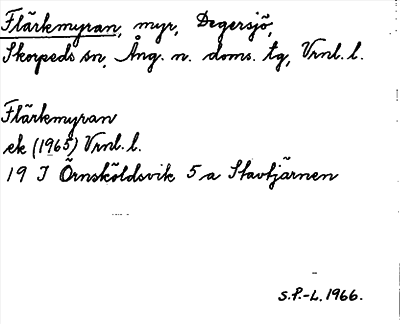 Flärkmyran, myr, Degersjö,
Skorpeds sn, Ång. n. doms. tg, Vrnl. l.
Flärkmyran
ek (1965) Vrnl. l.
19 I Örnsköldsvik 5 a Stavtjärnen
S.P.-L. 1966.